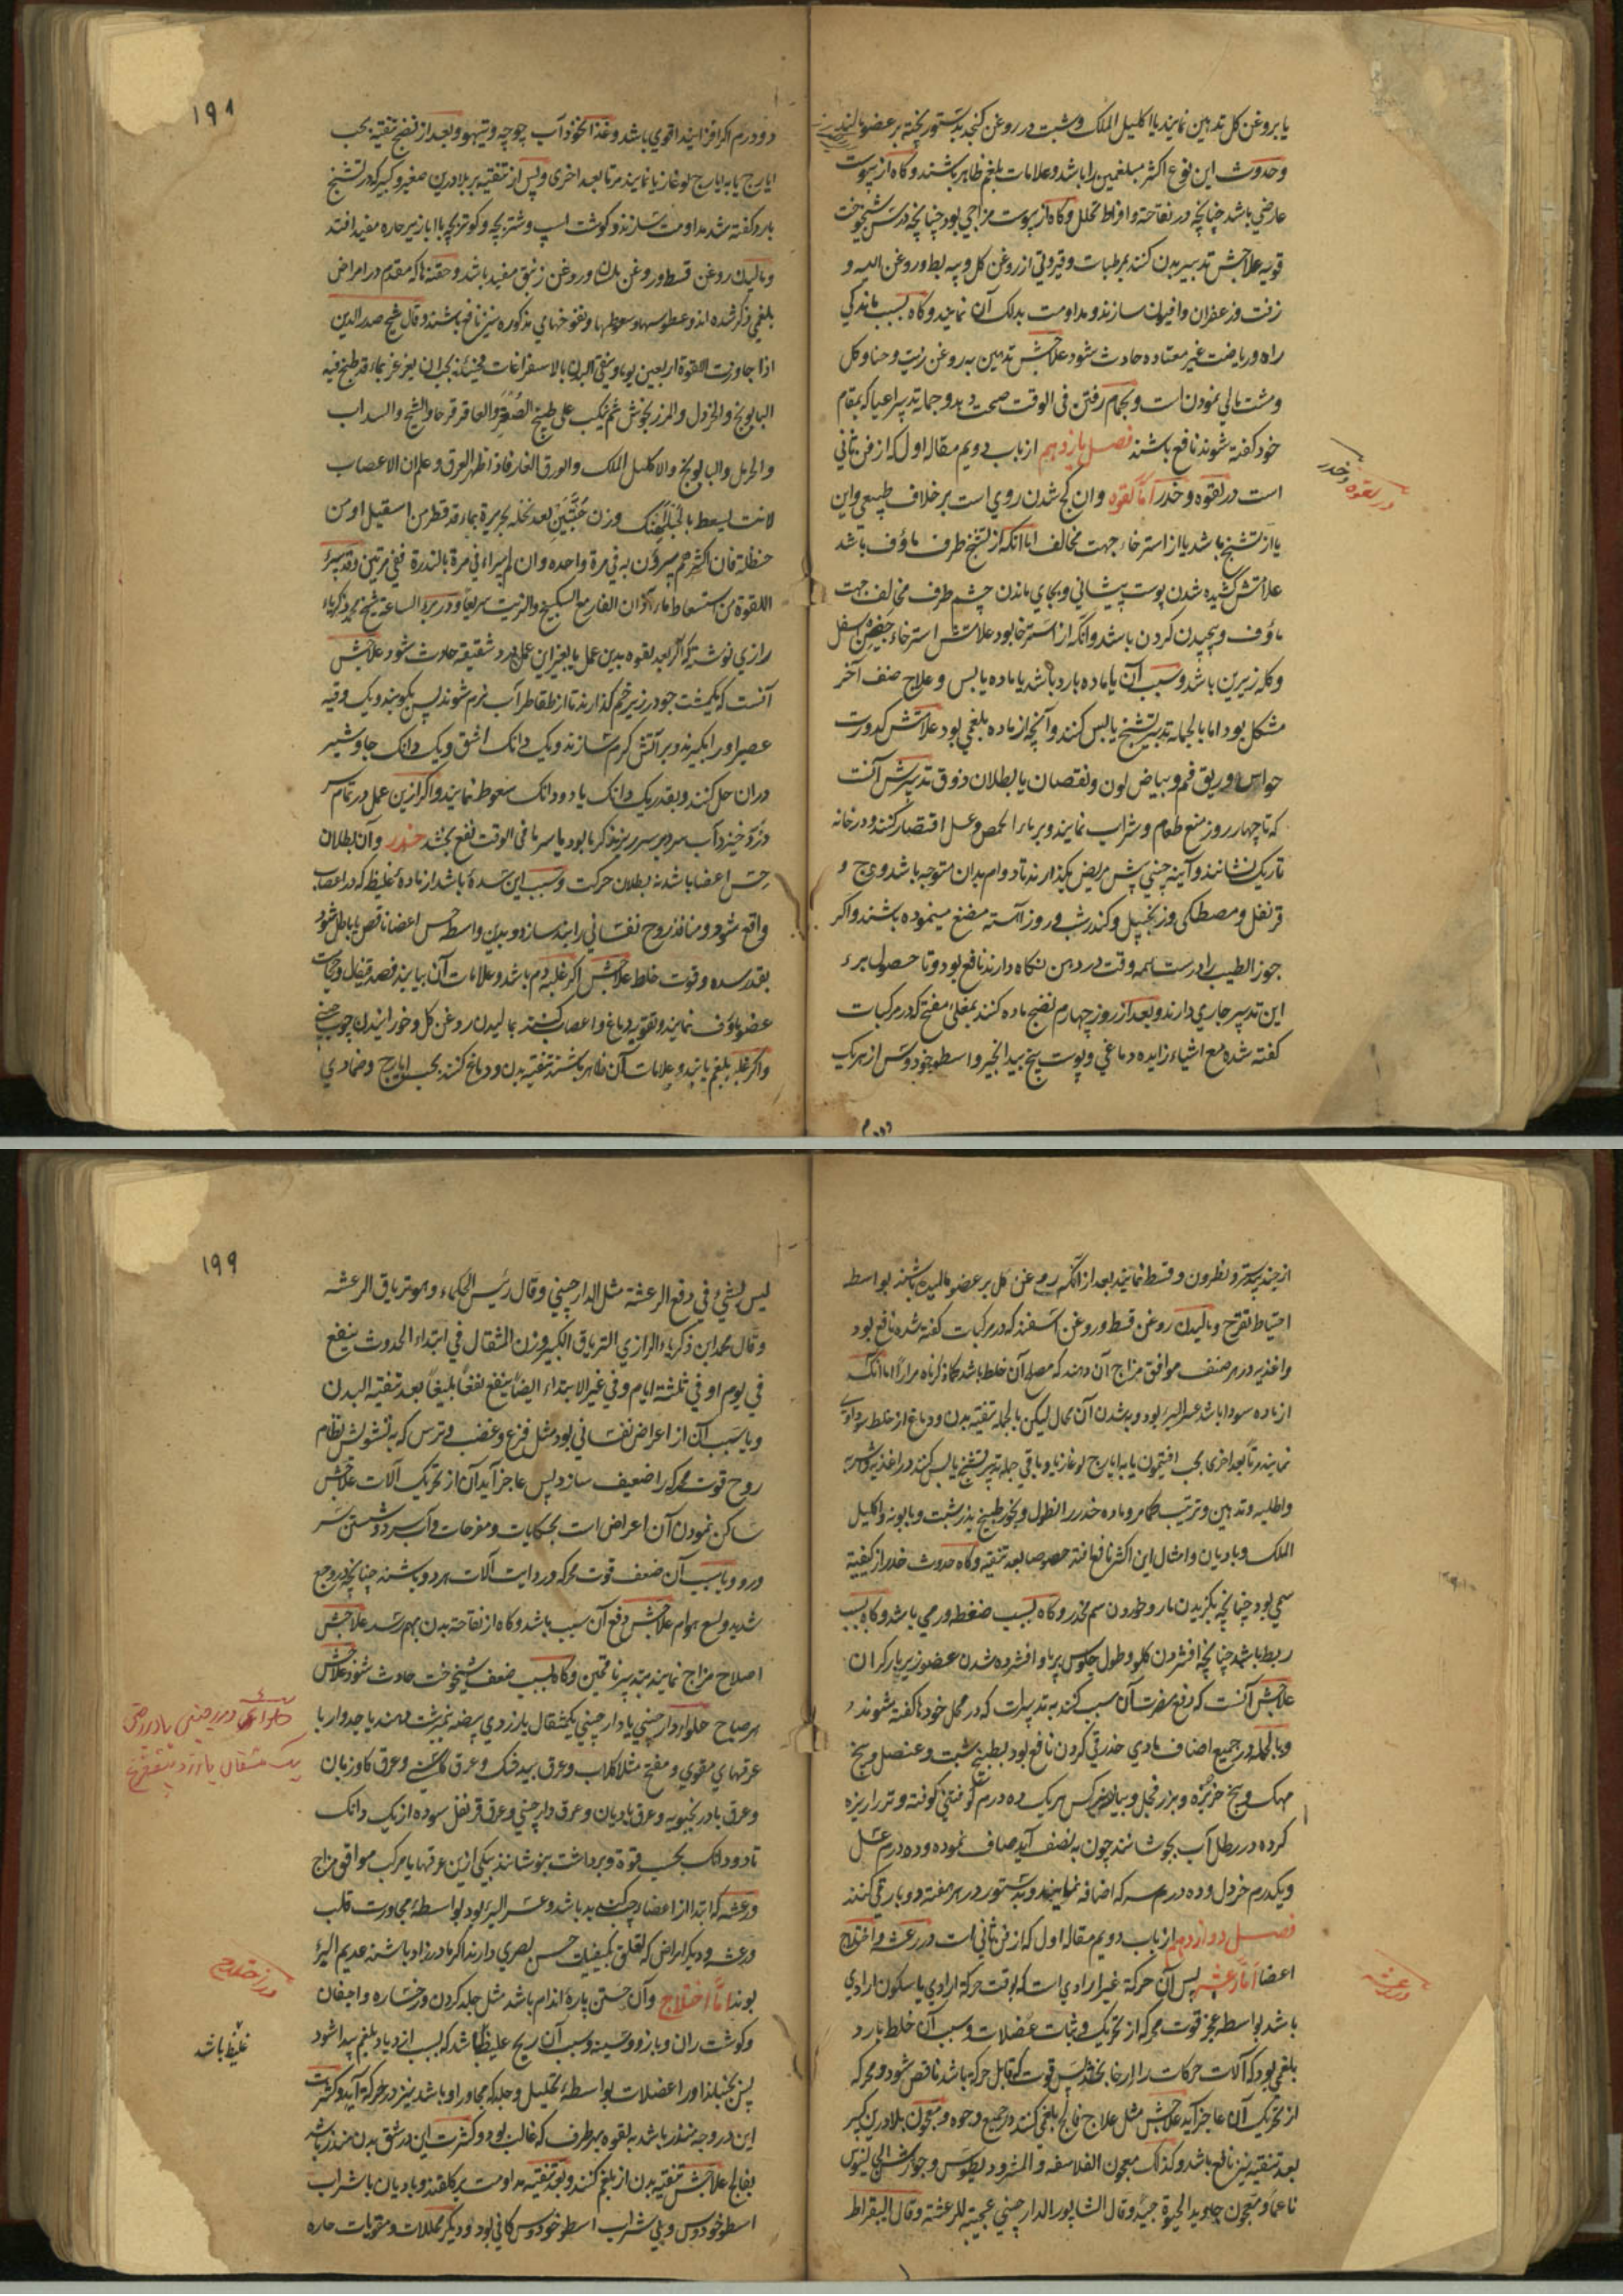 یا بروغن کل تدهین نمایند یا اکلیل الملک و شبت در روغن کنجد بدستور پخته بر عضو مالند
وحدوث این نوع اکثر مبلغمین را باشد وعلامات بلغم ظاهر باشند وکاه از یبوست
عارضی باشد چنانچه در نقاهة وافراط تحلل وکاه از یبوست مزاجی بود چنانچه در سن شیخوخت
قویه علاجش تدبیر بدن کنند بمرطبات وقیروتی از روغن کل و پیه بط وروغن الیه و
زفت وزعفران وافیون سازند ومداومت بدلک آن نمایند وکاه بسبب ماندکی
راه وریاضت غیر معتاده حادث شود علاجش تدهین به روغن زیت وحنا وکل
ومشت مالی نمودن است وبحمام رفتن فی الوقت صحت دهد وجمله تدبیر اعیا که بمقام
خود کفته شوند نافع باشند فصل یازدهم از باب دویم مقاله اول که از فن ثانی
است در لقوه وخدر اما لقوه وان کج شدن روی است بر خلاف طبیعی واین
یا از تشنج باشد یا از استرخاء جهت مخالف اما انکه از تشنج طرف ماؤف باشد
علامتش کشیده شدن پوست پیشانی وبجای ماندن چشم طرف مخالف جهت
ماؤف وپیچیدن کردن باشد وانکه از استرخا بود علامتش استرخاء جفن اسفل
وکله زیرین باشد وسبب آن یا ماده بارد باشد یا ماده یابس وعلاج صنف آخر
مشکل بود اما بالجمله تدبیر تشنج یابس کنند وآنچه از ماده بلغمی بود علامتش کدورت
حواس وریق فم وبیاض لون ونقصان یا بطلان ذوق تدبیرش آنست
که تا چهار روز منع طعام وشراب نمایند وبر ماء الحمص وعسل اقتصار کنند ودر خانه
تاریک نشانند وآینه چینی پیش مریض بکذارند تا دوام بدان متوجه باشد ووج و
قرنفل ومصطکی وزنجبیل وکندر شب وروز آهسته مضغ مینموده باشند واکر
جوز الطیب را درست همه وقت در دهن نکاه دارند نافع بود وتا حصول برء
این تدبیر جاری دارند وبعد از روز چهارم نضج ماده کنند بمغلی مفتح که در مرکبات
کفته شده مع اشیاء زایده دماغی وپوست بیخ بید انجیر واسطوخودوس از هر یک
دودرم
در لقوه وخدر
۱۹۸
دودرم اکر افزایند اقوی باشد وغذا نخود آب چوچه وتیهو وبعد از نضج تنقیه بحب
ایارج یا به ایارج لوغازیا نمایند مرتا بعد اخری وپس از تنقیه بر بلادرین صغیر وکبیر که در تشنج
بارد کفته شد مداومت سازند وکوشت اسپ وشتر بچه وکبوتر بچه با ابازیر حاره مفید افتد
ومالیدن روغن قسط وروغن بان وروغن زنبق مفید باشد وحقنه ها که مقدم در امراض
بلغمی ذکر شده اند وعطوسها وسعوطها ونفوخهای مذکوره نیز نافع باشند وقال شیخ صدر الدین
اذا جاوزت اللقوة اربعین یوما وینقی البدن بالاستفراغات فحینئذ یجب ان یغرغر بماء قد طبخ فیه
البابونج والخردل والمرزنجوش ثم یکب علی طبیخ الصعتر والعاقرقرحا والشیح والسداب
والحرمل والبابونج والاکلیل الملک والورق الغار فاذا ظهر العرق وعلم ان الاعصاب
لانت لیسعط بالخبلاهنک وزن حبتین بعد نخله بحریرة بماء قد قطر من اسقیل او من
حنظلة فان اکثرهم یبرؤن به فی مرة واحده وان لم یبراء فی مرة بالندرة ففی مرتین وقد یبرئ
اللقوة من استسعاط ماء آذان الفار مع السکبینج والزیت سریعا ودر برء الساعة شیخ محمد زکریاء
رازی نوشته که اکر بعد لقوه بدین عمل یا بغیر این عمل درد شقیقه حادث شود علاجش
آنست که یکمشت جو در زیر خم کذارند تا از تقاطر آب نرم شوند پس بکوبند ویک وقیه
عصیر او را بکیرند وبر آتش کرم سازند ویک دانک اشق ویک دانک جاوشیر
دران حل کنند وبقدر یک دانک یا دو دانک سعوط نمایند واکر ازین عمل در تمام سر
درد خیزد آب سرد بر سر ریزند کرما بود یا سرما فی الوقت نفع بخشد خدر وآن بطلان
حس اعضا باشد نه بطلان حرکت وسبب این سده باشد از مادهٔ غلیظ که در اعصاب
واقع شود ومنافذ روح نفسانی را بند سازد وبدین واسطه حس اعضا ناقص یا باطل شود
بقدر سده وقوت خلط علاجش اکر غلبه دم باشد وعلامات آن بیایند فصد قیفال وحجامت
عضو ماؤف نمایند وتقویه دماغ واعصاب کنند بمالیدن روغن کل وخورانیدن چوب چینی
واکر غلبه بلغم یابند وعلامات آن ظاهر باشند تنقیه بدن ودماغ کنند بحب ایارج وضمادی
از جندبیدستر ونطرون وقسط نمایند بعد از انکه روغن کل بر عضو مالیده باشند بواسطه
احتیاط تقرح ومالیدن روغن قسط وروغن اسفند که در مرکبات کفته شده نافع بود
واغذیه در هر صنف موافق مزاج آن دهند که مصلح آن خلط باشد کما ذکرناه مرارا اما انکه
از ماده سودا باشد عسر البرء بود وبه شدن آن محال لیکن بالجمله تنقیه بدن ودماغ از خلط سوداوی
نمایند مرتا بعد اخری بحب افتیمون یا به ایارج لوغازیا وباقی جمله تدبیر تشنج یابس کنند در اغذیه واشربه
واطلیه وتدهین وترتیب کما مر وماده خدر را نطول وبخور طبیخ بذر شبت وبابونه واکلیل
الملک وبادیان وامثال این اکثر نافع افتد خصوصا بعد تنقیه وکاه حدوث خدر از کیفیة
سمی بود چنانچه بکزیدن مار وخوردن سم مخدر وکاه بسبب ضغطه ورمی باشد وکاه بسبب
ربط باشد چنانچه افشردن کلو وطول جلوس بر پا وافشرده شدن عضو زیر بار کران
علاجش آنست که دفع مضرت آن سبب کنند به تدبیرات که در محل خودها کفته شوند و
وبالجمله در جمیع اصناف مادی خدر قی کردن نافع بود بطبیخ شبت وعنصل وبیخ
مهک وبیخ خربزه وبزر فجل وبیاض نرکس هر یک ده درم کوفتنی کوفته وتر را ریزه
کرده در رطل آب بجوشانند چون به نصف آید صاف نموده وده درم عسل
ویکدرم خردل وده درم سرکه اضافه نمایند وبدستور در هر هفته دوبار قی کنند
فصل دوازدهم از باب دویم مقاله اول که از فن ثانی است در رعشه واختلاج
اعضا اما رعشه پس آن حرکة غیر ارادی است که بوقت حرکة ارادی یا سکون ارادی
باشد بواسطه عجز قوت محرکه از تحریک وثبات عضلات وسبب آن خلط بارد
بلغمی بود که آلات حرکات را ارخا بخشد پس قوت که قابل حرکة باشد ناقص شود ومحرکه
از تحریک آن عاجز آید علاجش مثل علاج فالج بلغمی کنند در جمیع وجوه ومعجون بلادرین کبیر
بعد تنقیه نیز نافع باشد وکذلک معجون الفلاسفه والمثرودیطوس وجوارش جالینوس
ناعما ومعجون جاوید الحیوة جید وقال الشاپور الدارچینی عجیبة للرعشة وقال البقراط
در رعشه
۱۹۹
لیس لشیء فی دفع الرعشة مثل الدارچینی وقال رئیس الحکماء وهو تریاق الرعشه
وقال محمد ابن ذکریاء الرازی التریاق الکبیر وزن المثقال فی ابتداء الحدوث ینفع
فی یوم او فی ثلثة ایام وفی غیر الابتداء ایضا ینفع نفعا بلیغا بعد تنقیة البدن
ویا سبب آن از اعراض نفسانی بود مثل فزع وغضب وترس که به تشویش نظام
روح قوت محرکه را ضعیف سازد پس عاجز آید آن از تحریک آلات علاجش
ساکن نمودن آن اعراض است بحکایات ومفرحات وآب سرد وشستن سر
ورو ویا سبب آن ضعف قوت محرکه وردایت آلات هر دو باشند چنانچه در وجع
شدید ولسع هوام علاجش دفع آن سبب باشد وکاه از نقاهة بدن بهم رسد علاجش
اصلاح مزاج نمایند بتدبیر ناقهین وکاه بسبب ضعف شیخوخت حادث شود علاجش
هر صباح حلواء دارچینی یا دارچینی یکمثقال با زردی بیضه نیمبرشت دهند یا جدوار با
عرقهای مقوی ومفتح مثلا کلاب وعرق بید خشک وعرق کاسنی وعرق کاوزبان
وعرق بادرنجبویه وعرق بادیان وعرق دارچینی وعرق قرنفل سوده از یک دانک
تا دو دانک بحسب قوة وبرداشت بنوشانند بیکی ازین عرقها یا مرکب موافق مزاج
ورعشه که ابتدا از اعضاء چپ کند بد باشد وعسر البرء بود بواسطهٔ مجاورت قلب
ورعشه ودیکر امراض که تعلق بکیفیات حس بصری دارند اکر مادرزاد باشند عدیم البرء
بوند اما اختلاج وآن جستن پارهٔ اندام باشد مثل جلد کردن ورخساره واجفان
وکوشت ران وبازو وسینه وسبب آن ریح غلیظ باشد که بسبب ازدیاد بلغم پیدا شود
پس بجنباند او را عضلات بواسطهٔ تحلیل وجلد که مجاور او باشد نیز در حرکة آید وکثرت
این در وجه منذر باشد به لقوه بهر طرف که غالب بود وکثرت این در شق بدن منذر باشد
بفالج علاجش تنقیه بدن از بلغم کنند وبعد تنقیه مداومت بر کلقند وبادیان با شراب
اسطوخودوس وبلی شراب اسطوخودوس کافی بود ودیکر محللات ومقویات حاره
در اختلاج
غلیظ باشد